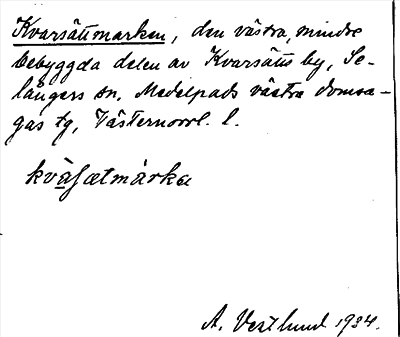 Kvarsättmarken, den västra, mindre
bebyggda delen av Kvarsätts by, Se-
långers sn. Medelpads västra domsa-
gas tg, Västernorrl. l.
A. Vestlund 1934.